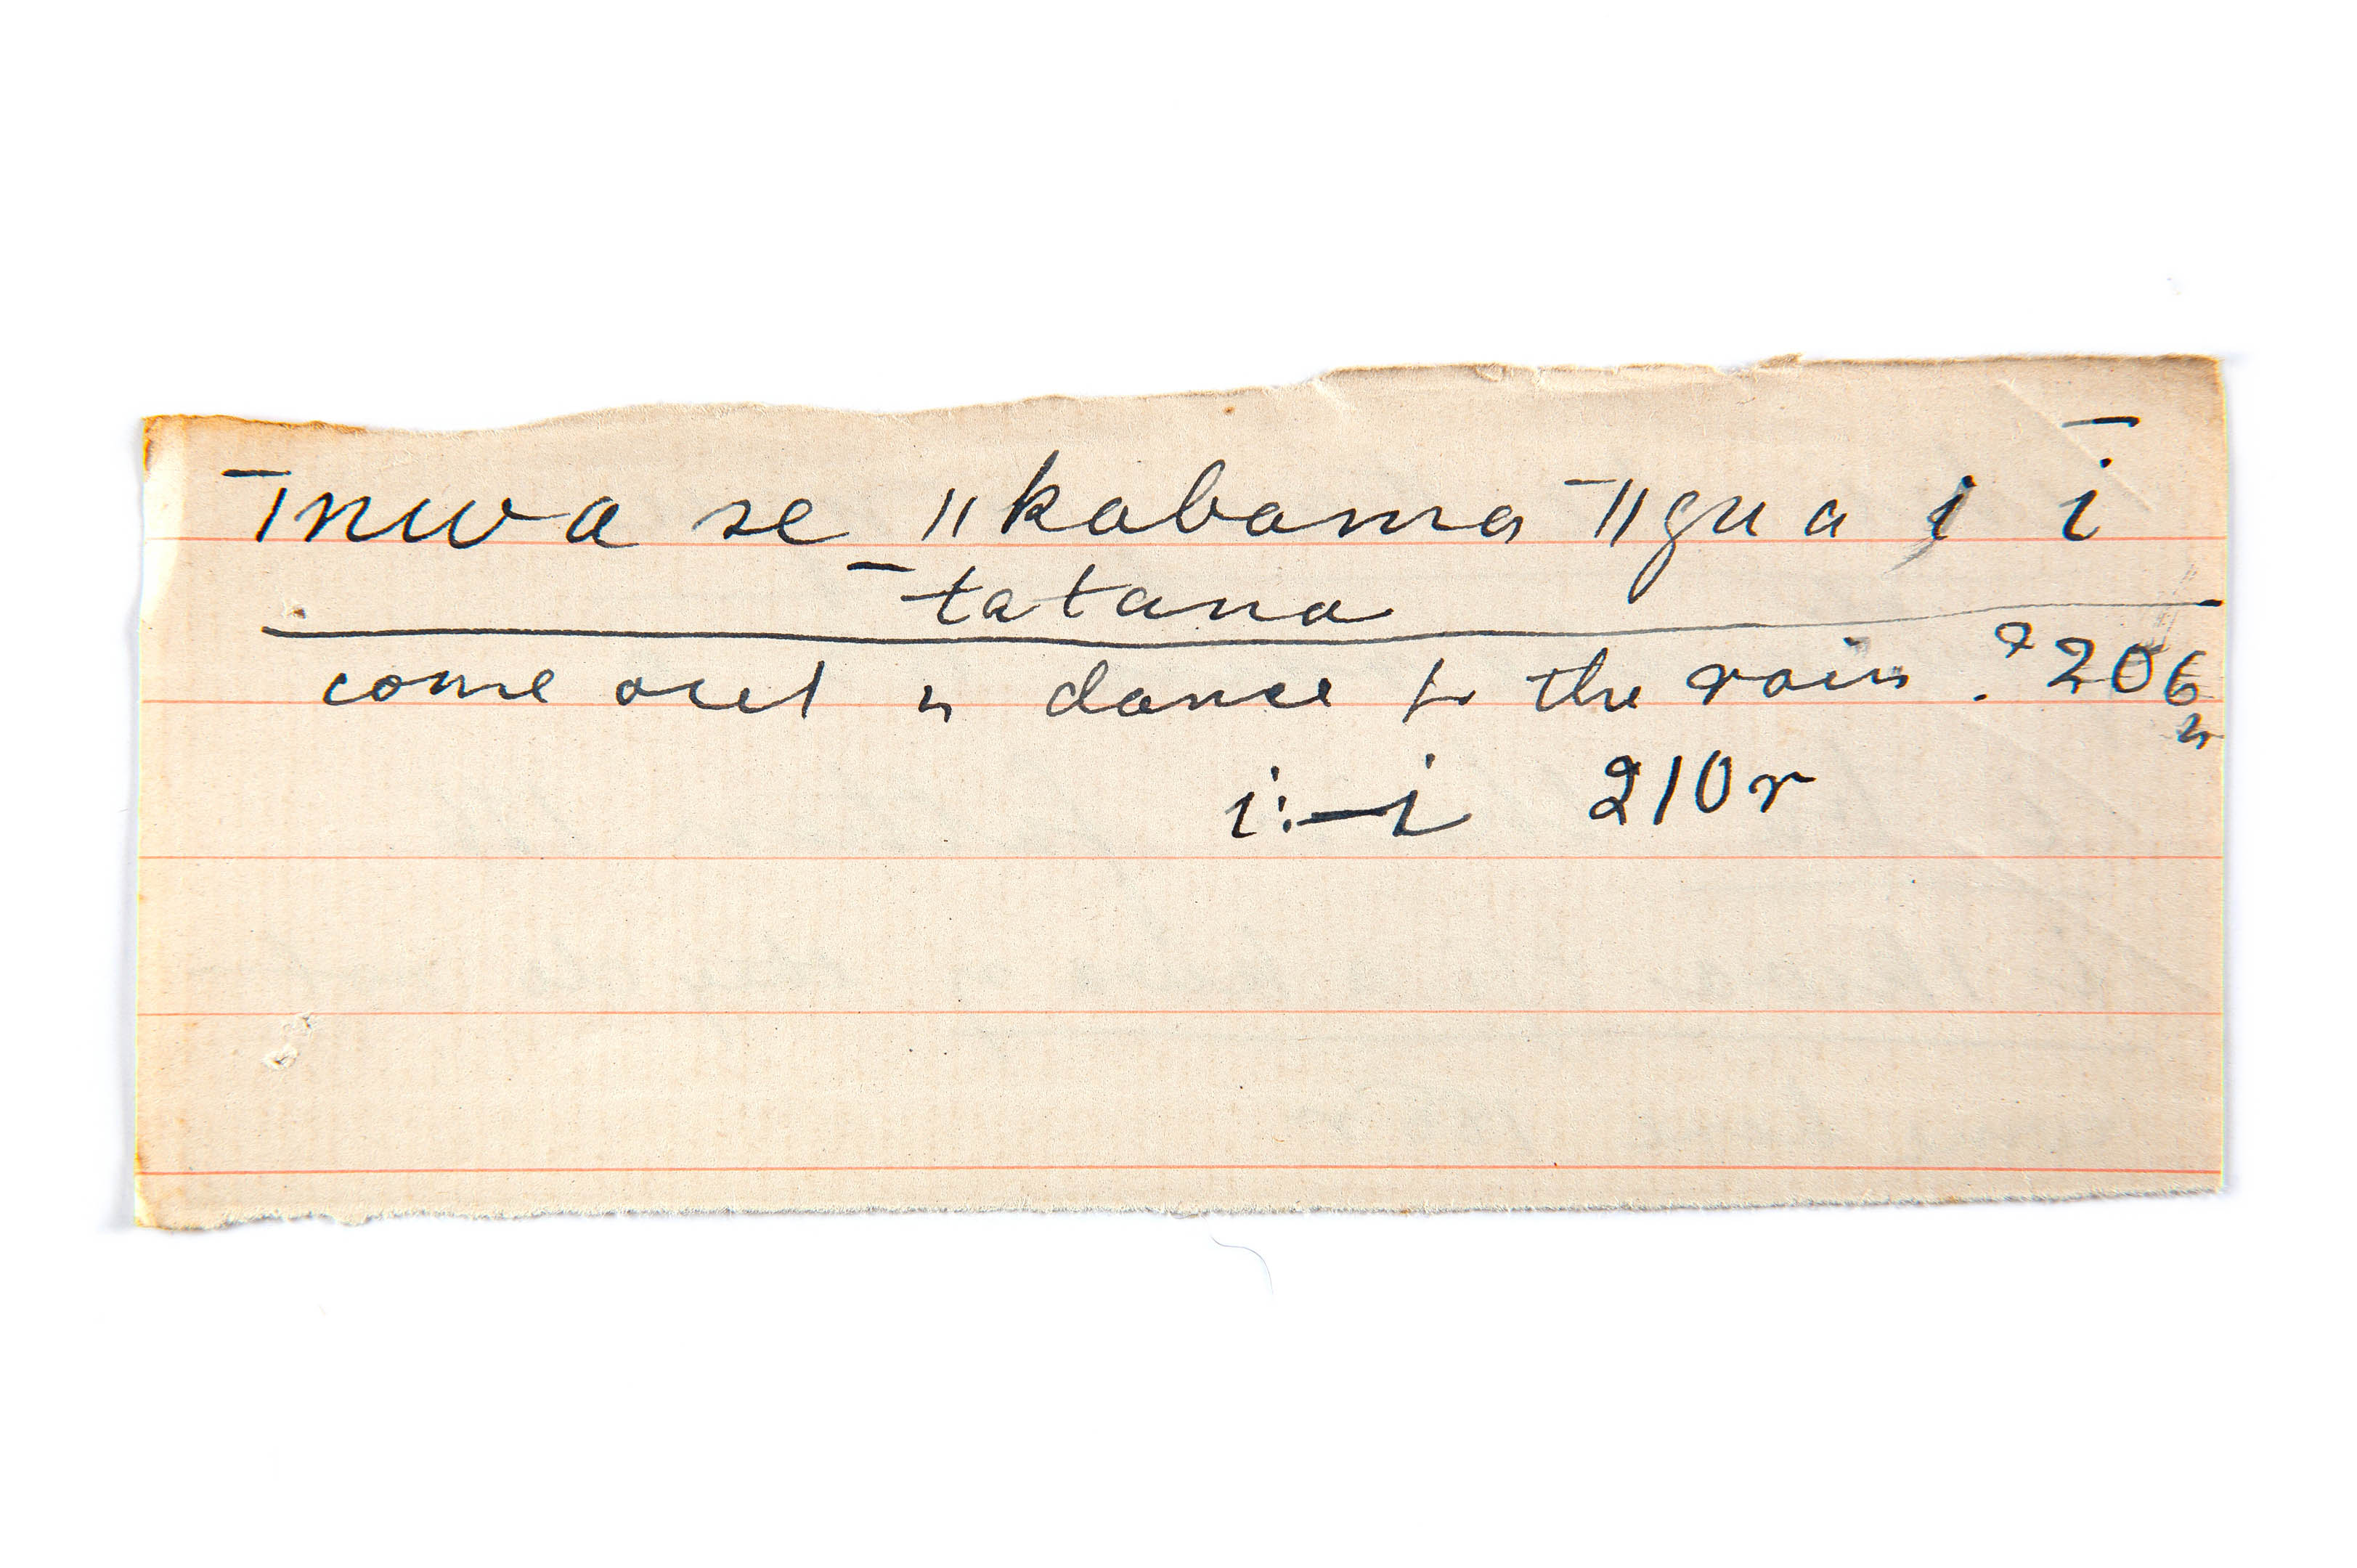 ¯|nwa se ||kabama ¯||gua i ī
¯tatana
come out n dance to the rain. ? 206
n
i:—i 210r